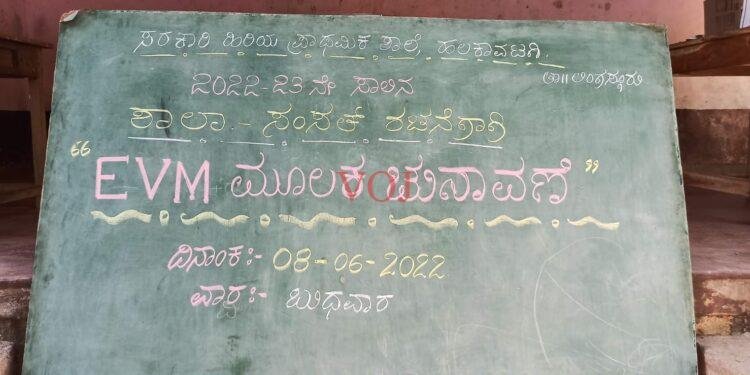 ಸರಕಾರಿ ಹಿರಿಯ ಪ್ರಾಥಮಿಕ ಶಾಲೆ, ಹಲಕಾವಟಗಿ.
ತಾ॥ ಲಿಂಗಸ್ಗೂರು
೨೦೨೨-೨೩ ನೇ ಸಾಲಿನ
ಶಾಲಾ - ಸಂಸತ್ ರಚನೆಗಾಗಿ
“EVM ಮೂಲಕ ಚುನಾವಣೆ”
VOJ
ದಿನಾಂಕ:- 08-06-2022
ವಾರ:- ಬುಧವಾರ